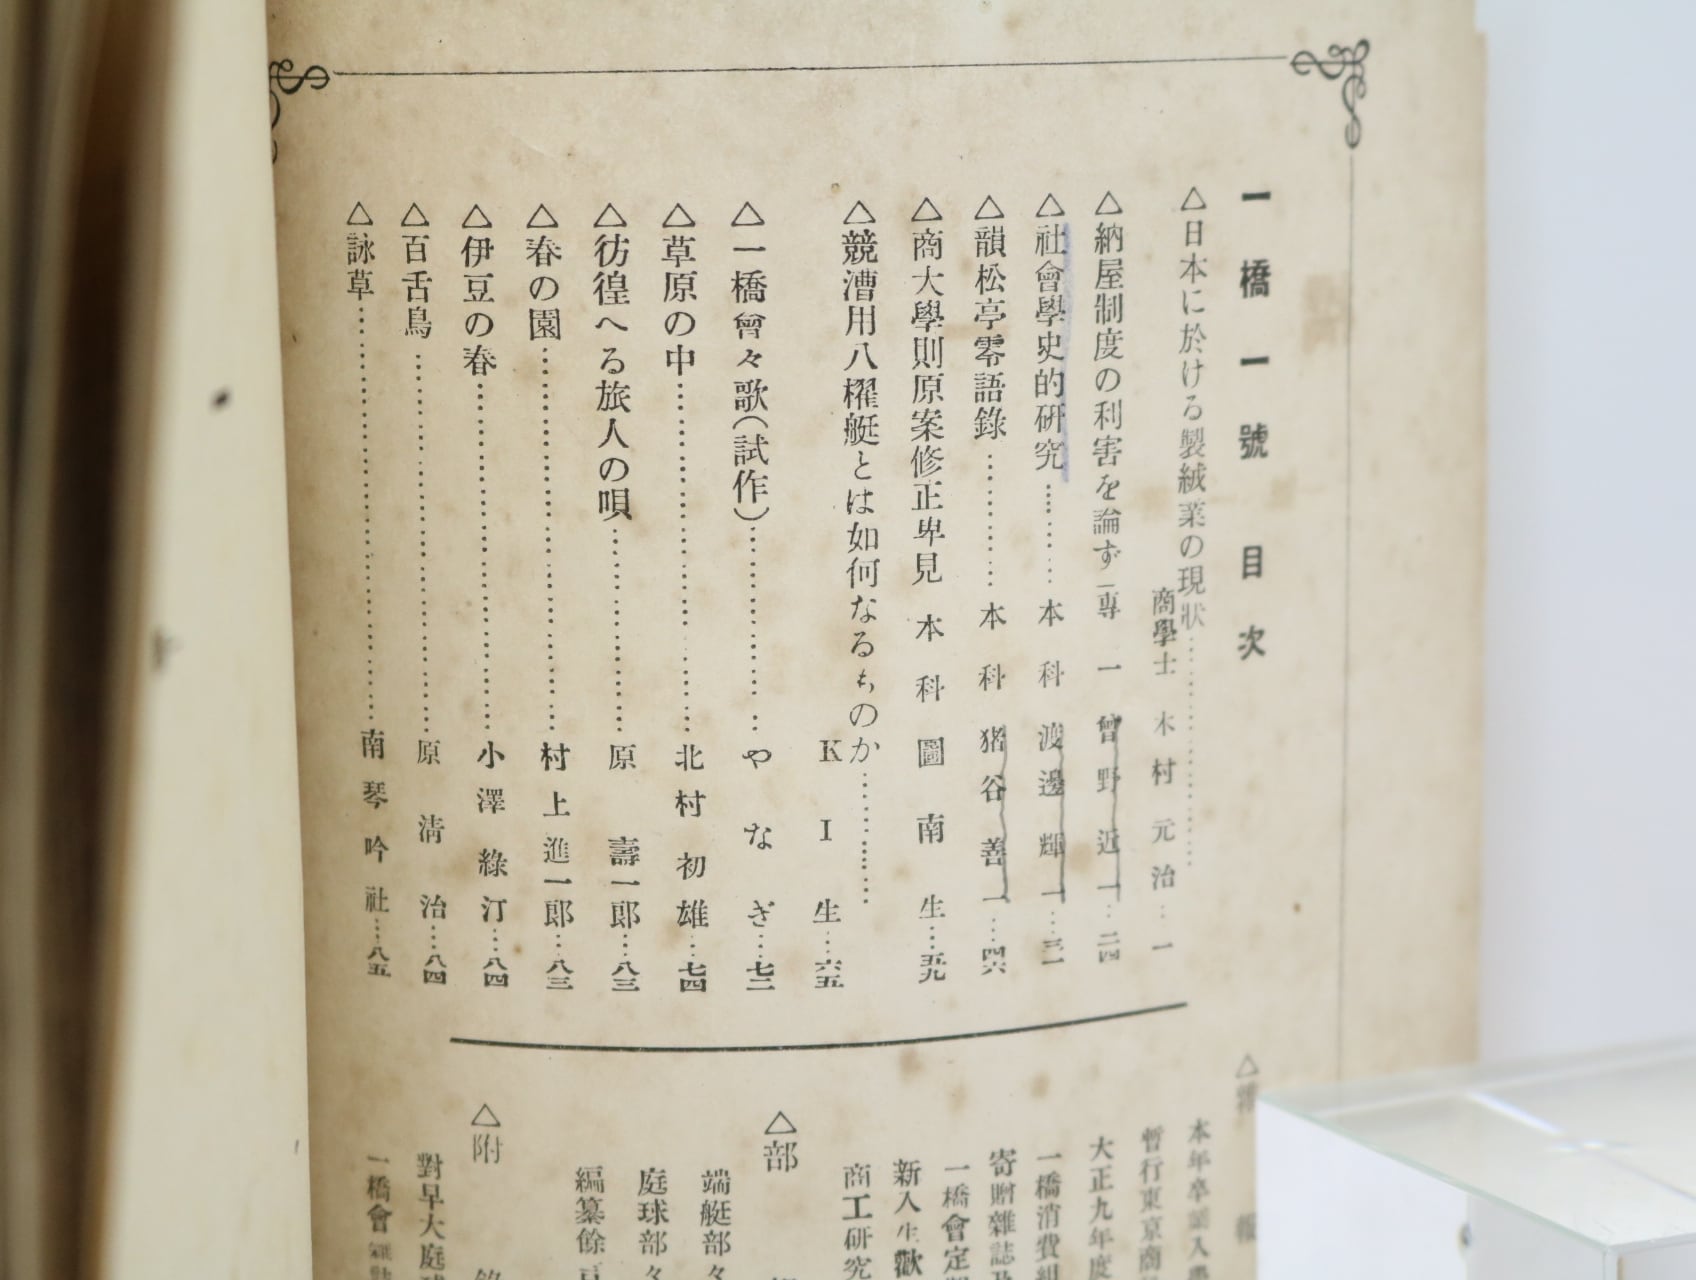 一橋一號目次
△日本に於ける製絨業の現狀……………
商學士 木村元治…一
△納屋制度の利害を論ず 一專 一 曾野近一…二四
△社會學史的硏究………本科 渡邊輝一…三一
△韻松亭零語錄…………本科 猪谷善一…四六
△商大學則原案修正卑見 本科 圖南生…五九
△競漕用八櫂艇とは如何なるものか…………
KI生…六五
△一橋會々歌(試作)……………やなぎ…七二
△草原の中……………………北村初雄…七四
△彷徨へる旅人の唄……………原壽一郎…八三
△春の園……………………村上進一郎…八三
△伊豆の春……………………小澤綠汀…八四
△百舌鳥……………………原淸治…八四
△詠草……………………南琴吟社…八五
報
本年卒業入
暫行東京商
大正九年度
一橋消費組
寄贈雜誌及
一橋會定
新入生歡
商工硏究
△部
端艇部々
庭球部々
編纂餘言
△附
對早大庭球
一橋會雜誌